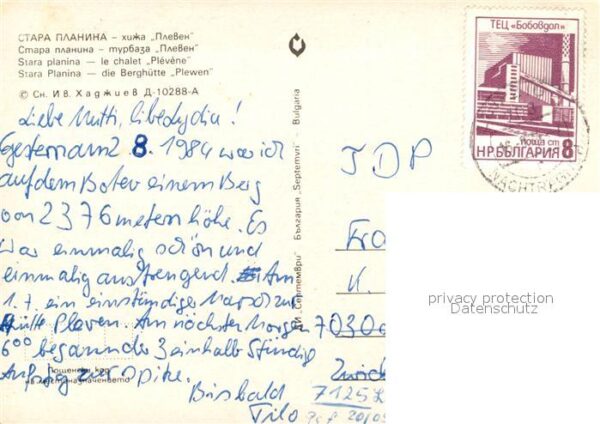 СТАРА ПЛАНИНА – хижа „Плевен"
Стара планина – турбаза „Плевен"
Stara planina — le chalet „Plévéne"
Stara Planina — die Berghütte „Plewen"
© Сн. Ив. Хаджиев Д-10288-А
Liebe Mutti, liebe Lydia!
Gestern am 2 8. 1984 war ich
auf dem Botev einem Berg
von 2376 metern höhe. Es
war einmalig schön und
einmalig anstrengend. Am
1.7. ein einstündiger Marsch zur
Hütte Pleven. Am nächsten Morgen
6⁰⁰ begann der 3 einhalb stündig
Aufstieg zur Spitze.
Bis bald
Tilo
Пощенски код
на местоназначението
ДИ „Септември" България „Septemvri" Bulgaria
ТЕЦ „Бобовдол"
поща ст
НР БЪЛГАРИЯ 8
JDP
Fra
K.
7030
7125
privacy protection
Datenschutz